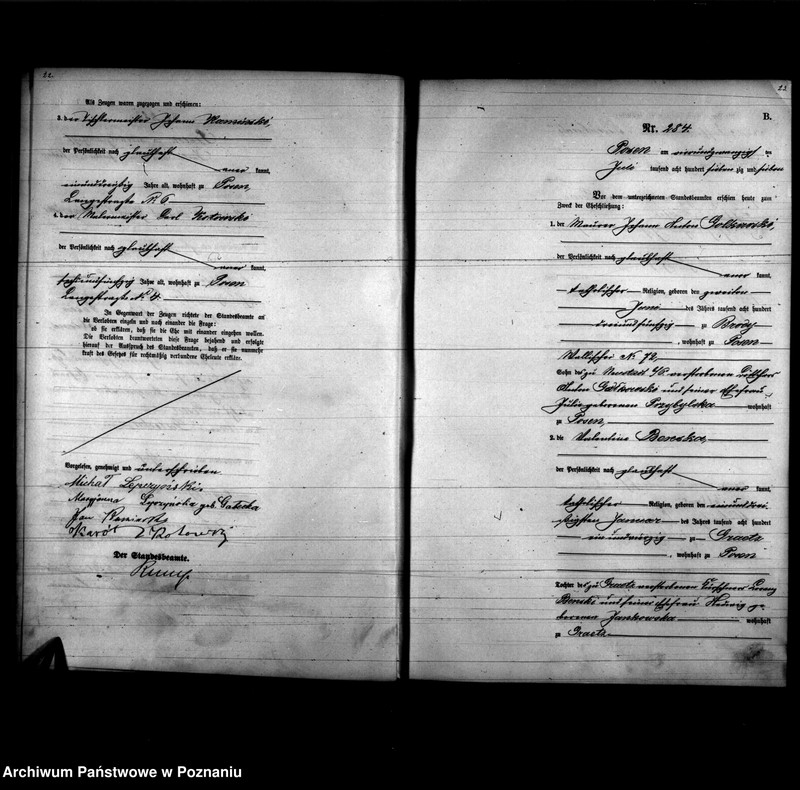 22.
Als Zeugen waren zugezogen und erschienen:
3. der Tischlermeister Johann
der Persönlichkeit nach glaubhaft
kannt,
einunddreißig Jahre alt, wohnhaft zu Posen,
Langestraße № 6
4. der Malermeister Carl Kotowski
der Persönlichkeit nach glaubhaft
kannt,
Jahre alt, wohnhaft zu Posen
Langestraße № 4.
In Gegenwart der Zeugen richtete der Standesbeamte an
die Verlobten einzeln und nach einander die Frage:
ob sie erklären, daß sie die Ehe mit einander eingehen wollen.
Die Verlobten beantworteten diese Frage bejahend und erfolgte
hierauf der Ausspruch des Standesbeamten, daß er sie nunmehr
kraft des Gesetzes für rechtmäßig verbundene Eheleute erkläre.
Vorgelesen, genehmigt und unterschrieben
Michał
Maryjanna geb. Gałecka
Jan
Karól Kotowski
Der Standesbeamte.
23
B.
Nr. 284.
Posen am einundzwanzigsten
Juli tausend acht hundert siebenzig und sieben
Vor dem unterzeichneten Standesbeamten erschien heute zum
Zweck der Eheschließung:
1. der Maurer Johann Anton
der Persönlichkeit nach glaubhaft
kannt,
katholischer Religion, geboren den zweiten
Juni des Jahres tausend acht hundert
dreiundfünfzig zu Brody
, wohnhaft zu Posen
Wallischei № 72,
Sohn des zu Neustadt verstorbenen
Anton und seiner Ehefrau
Julie geborenen Przybylska wohnhaft
zu Posen,
2. die Valentine Benska,
der Persönlichkeit nach glaubhaft
kannt,
katholischer Religion, geboren den einunddreißigsten
Januar des Jahres tausend acht hundert
zu Graetz
, wohnhaft zu Posen
Tochter des zu Graetz verstorbenen Lorenz
Benski und seiner Ehefrau Hedwig ge-
borenen Jankowska wohnhaft
zu Graetz
Archiwum Państwowe w Poznaniu